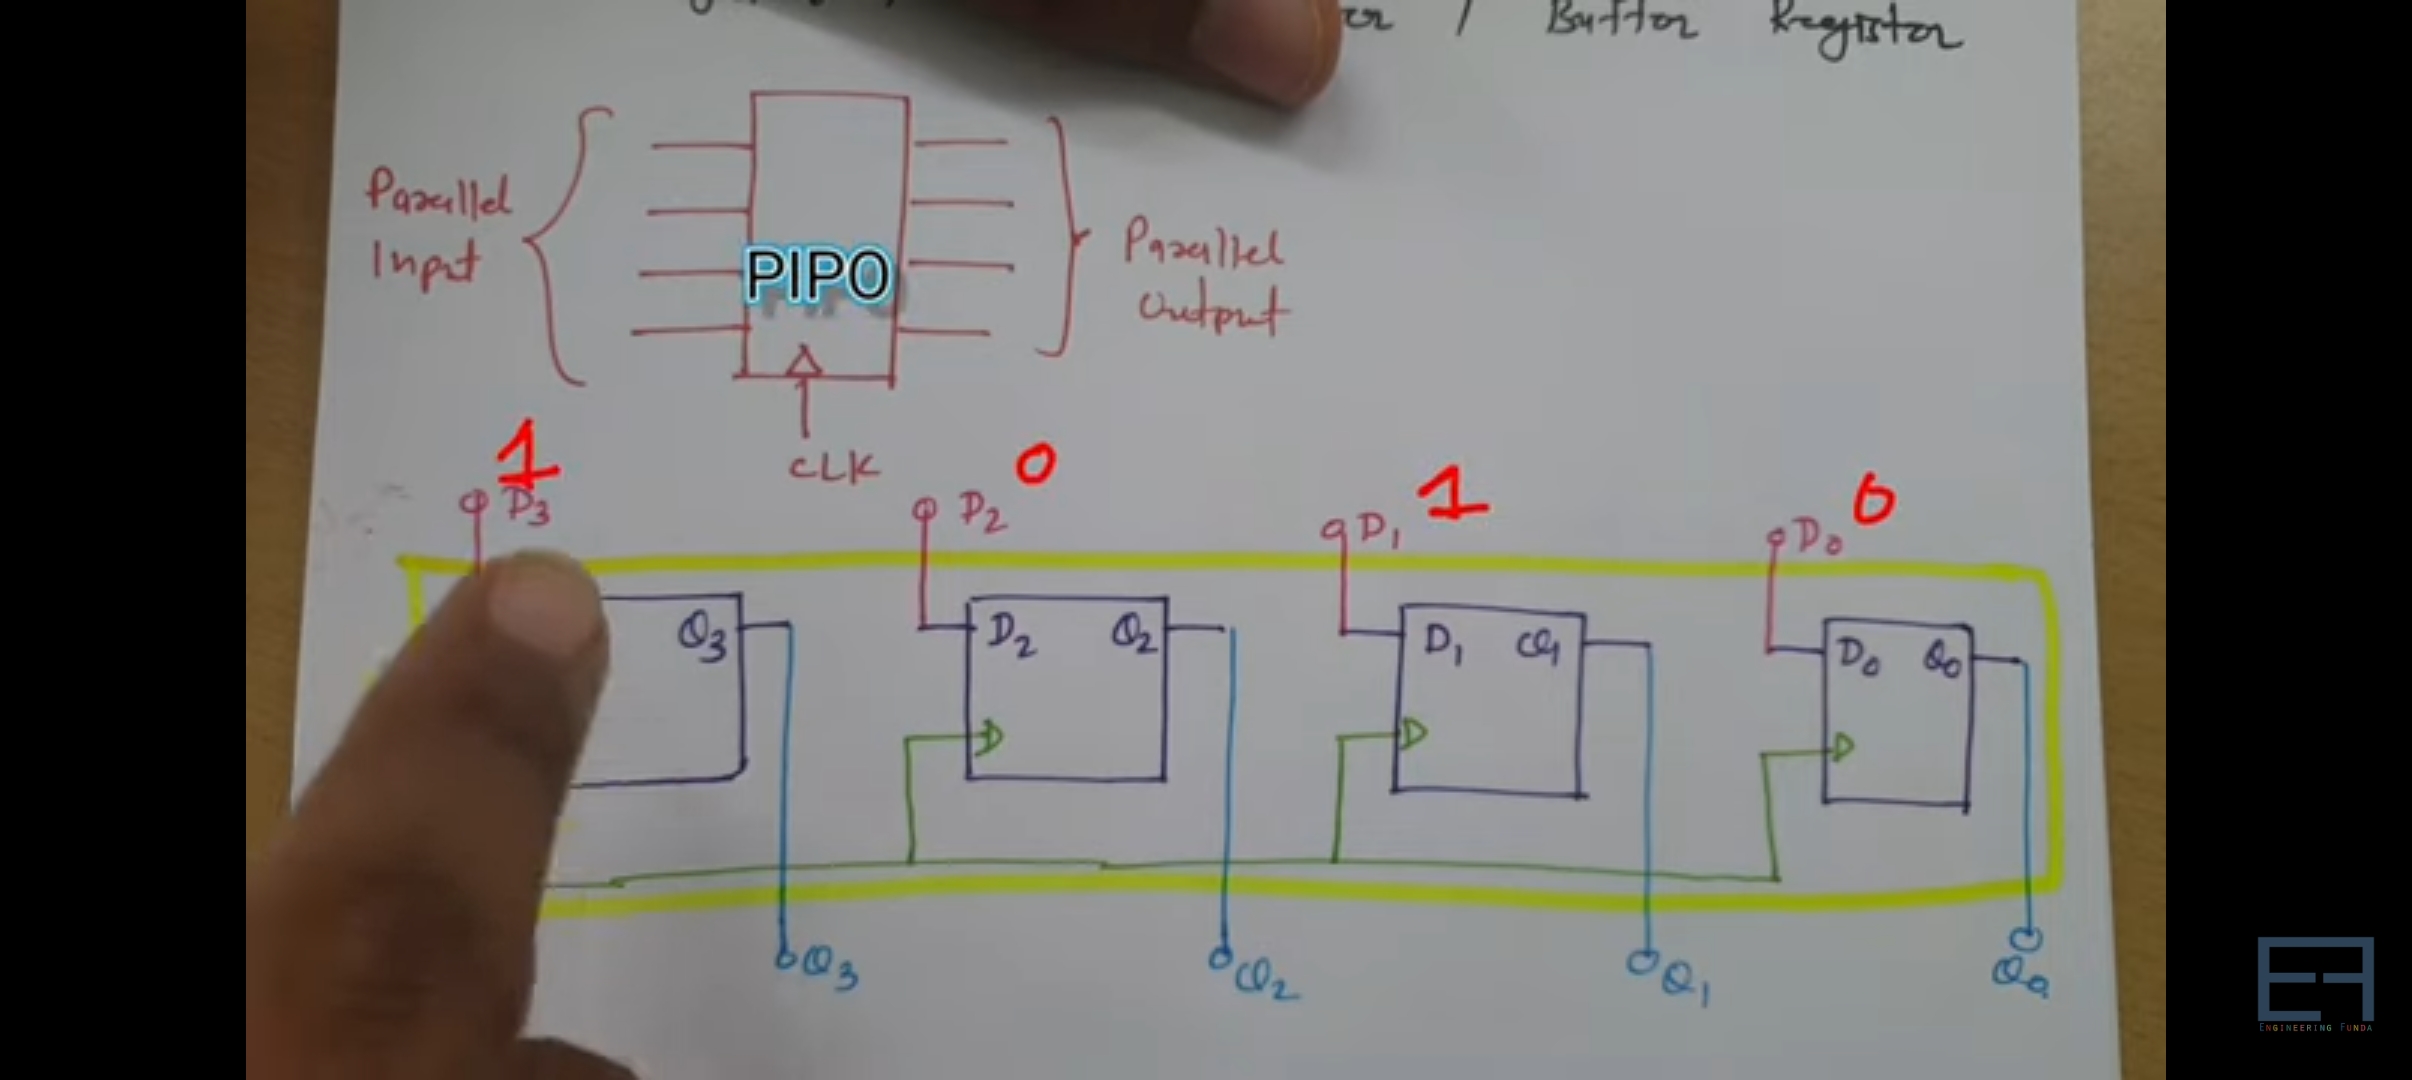 / Buffer Register
Parallel
Input
PIPO
Parallel
Output
CLK
1 0 1 0
D3 D2 D1 D0
Q3 D2 Q2 D1 Q1 D0 Q0
Q3 Q2 Q1 Q0
EF
ENGINEERING FUNDA